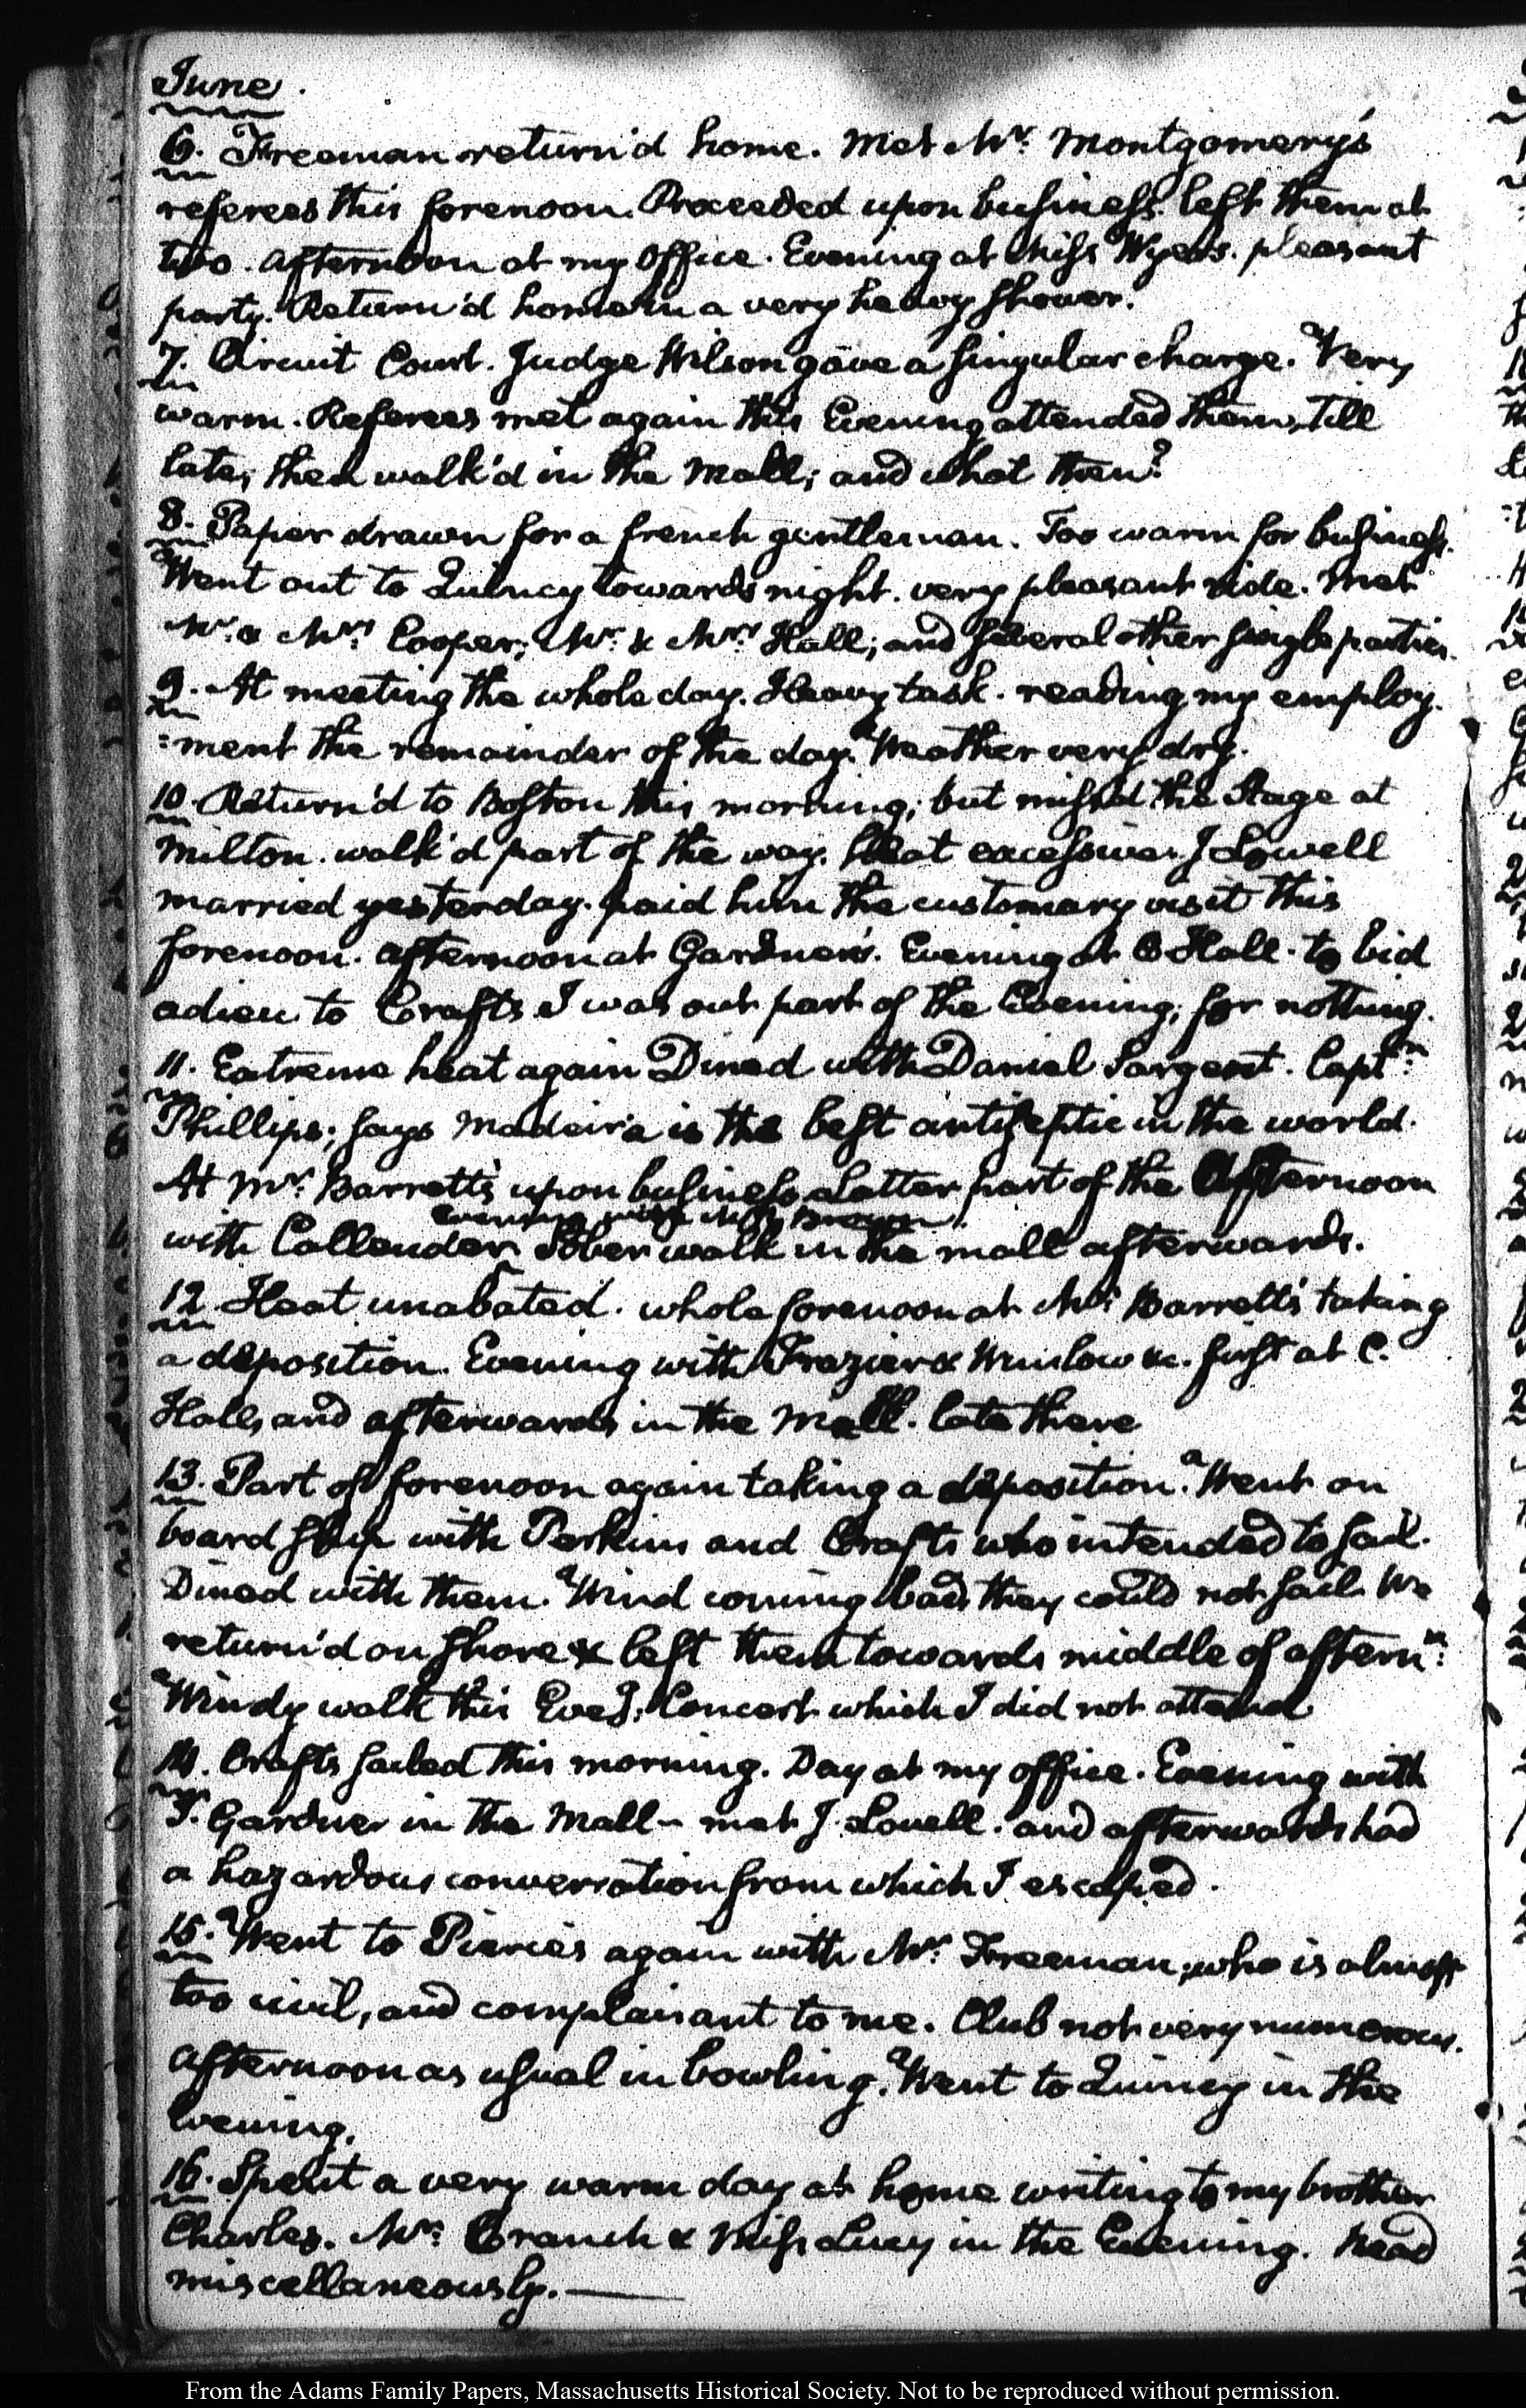 June.
6. Freeman return'd home. Met Mr. Montgomery's
referees this forenoon. Proceeded upon business. left them at
two. afternoon at my Office. Evening at Miss Wyer's. pleasant
party. Return'd home in a very heavy shower.
7. Circuit Court. Judge Wilson gave a singular charge. Very
warm. Referees met again this Evening attended them, till
late; then walk'd in the Mall; and what then?
8. Paper drawn for a french gentleman. Too warm for business.
Went out to Quincy towards night. very pleasant ride. Met
Mr. & Mrs. Cooper; Mr. & Mrs. Hall; and several other single parties.
9. At meeting the whole day. Heavy task. reading my employ-
:ment the remainder of the day. Weather very dry.
10. Return'd to Boston this morning; but miss'd the Stage at
Milton. walk'd part of the way. Heat excessive. J Lowell
married yesterday. paid him the customary visit this
forenoon. afternoon at Gardner's. Evening at C Hall. to bid
adieu to Crafts. I was out part of the Evening, for nothing.
11. Extreme heat again Dined with Daniel Sargent. Captn:
Phillips; says Madeira is the best antiseptic in the world.
At Mr. Barrett's upon business. Latter part of the Afternoon
evening with Miss Breese.
with Callender. Sober walk in the mall afterwards.
12 Heat unabated. whole forenoon at Mr. Barrett's taking
a deposition. Evening with Frazier & Winslow &c. first at C.
Hall, and afterwards in the Mall. late there
13. Part of forenoon again taking a deposition. Went on
board ship with Perkins and Crafts who intended to sail.
Dined with them. Wind coming bad they could not sail. We
return'd on shore & left them towards middle of aftern:n
Windy walk this Eveg: Concert which I did not attend
14. Crafts sailed this morning. Day at my office. Evening with
J. Gardner in the Mall - met J. Lowell. and afterwards had
a hazardous conversation from which I escaped.
15. Went to Pierie's again with Mr. Freeman; who is almost
too civil, and complaisant to me. Club not very numerous.
afternoon as usual in bowling. Went to Quincy in the
evening.
16. Spent a very warm day at home writing to my brother
Charles. Mrs. Cranch & Miss Lucy in the Evening. Read
miscellaneously.
From the Adams Family Papers, Massachusetts Historical Society. Not to be reproduced without permission.